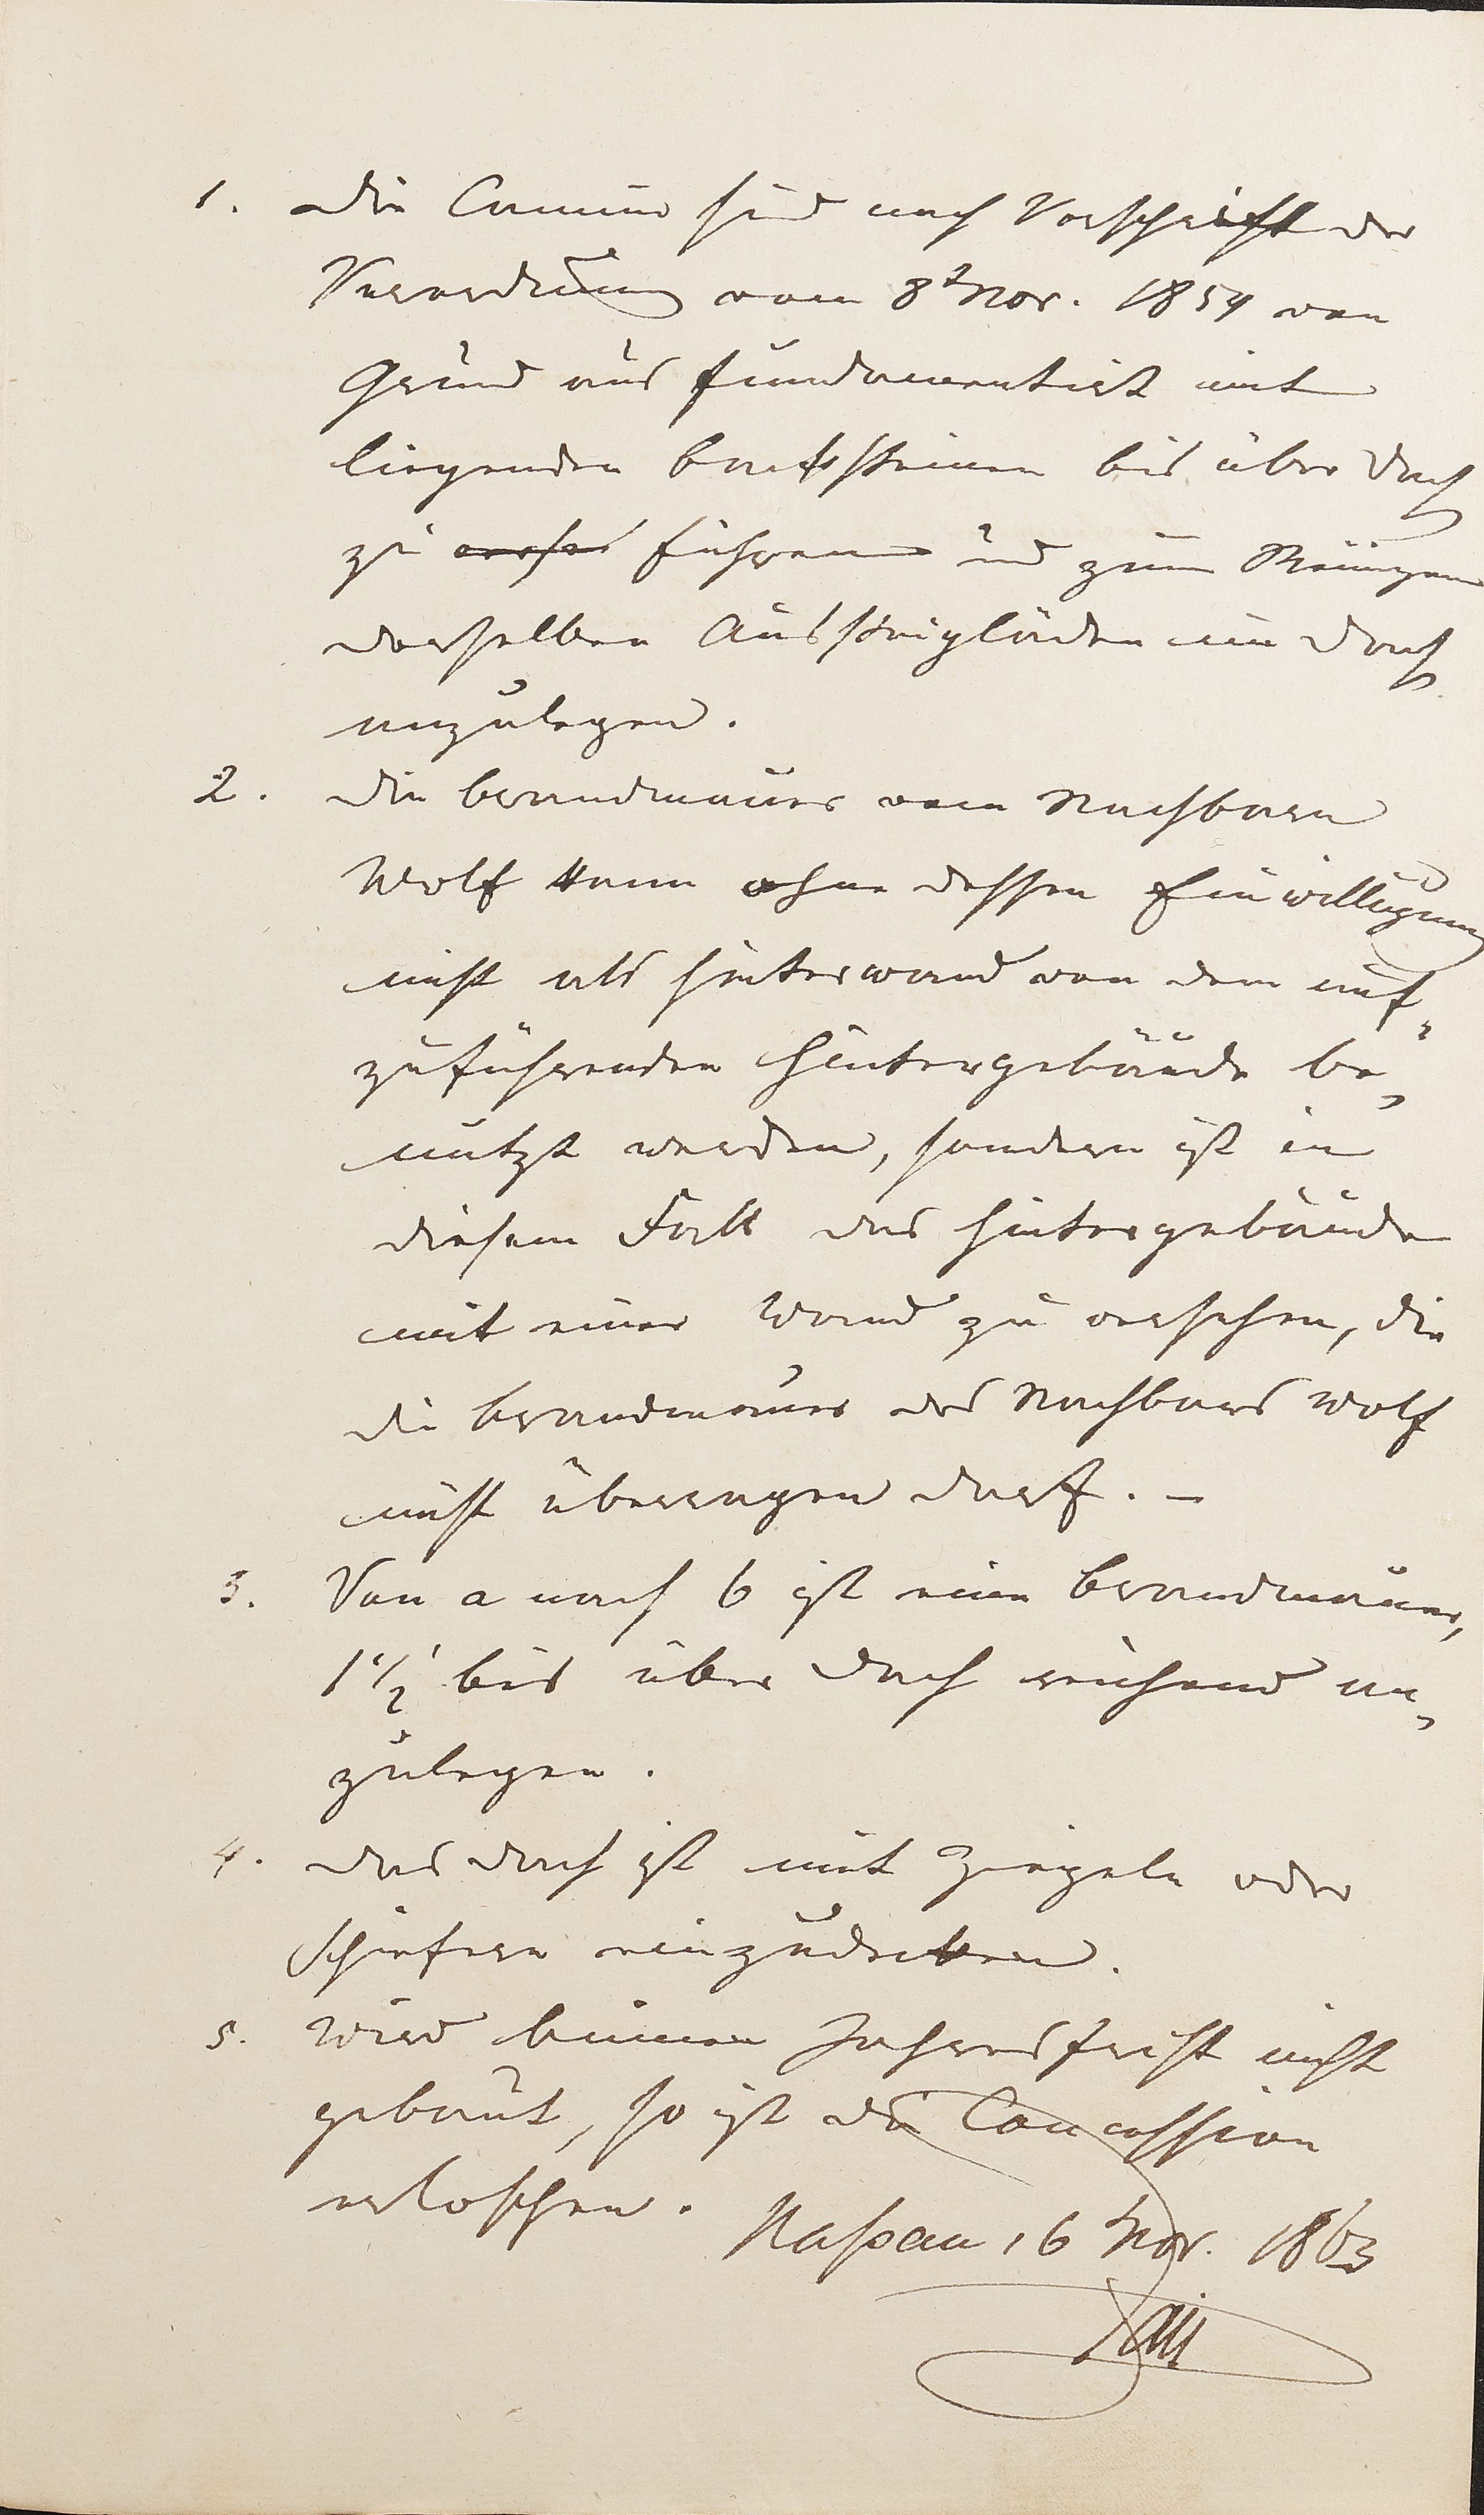 1. Die Camine sind nach Vorschrift der
Verordnung vom 8t Nov. 1854 von
Grund aus fundamentirt mit
liegenden Backsteinen bis über Dach
zu führen und zum Reinigen
derselben Aussteigläden im Dach
anzulegen.
2. Die Brandmauer vom Nachbarn
Wolf kann ohne dessen Einwilligung
nicht als Hinterwand von dem auf„
zuführenden Hintergebäude be„
nutzt werden, sondern ist in
diesem Fall das Hintergebäude
mit einer Wand zu versehen, die
die Brandmauer des Nachbars Wolf
nicht überragen darf. –
3. Von a nach b ist eine Brandmauer,
1 1/2' bis über Dach reichend an„
zulegen.
4. Das Dach ist mit Ziegeln oder
Schiefern einzudecken.
5. Wird binnen Jahresfrist nicht
gebaut, so ist die Concession
erloschen.
Naßau 16 Nov. 1863